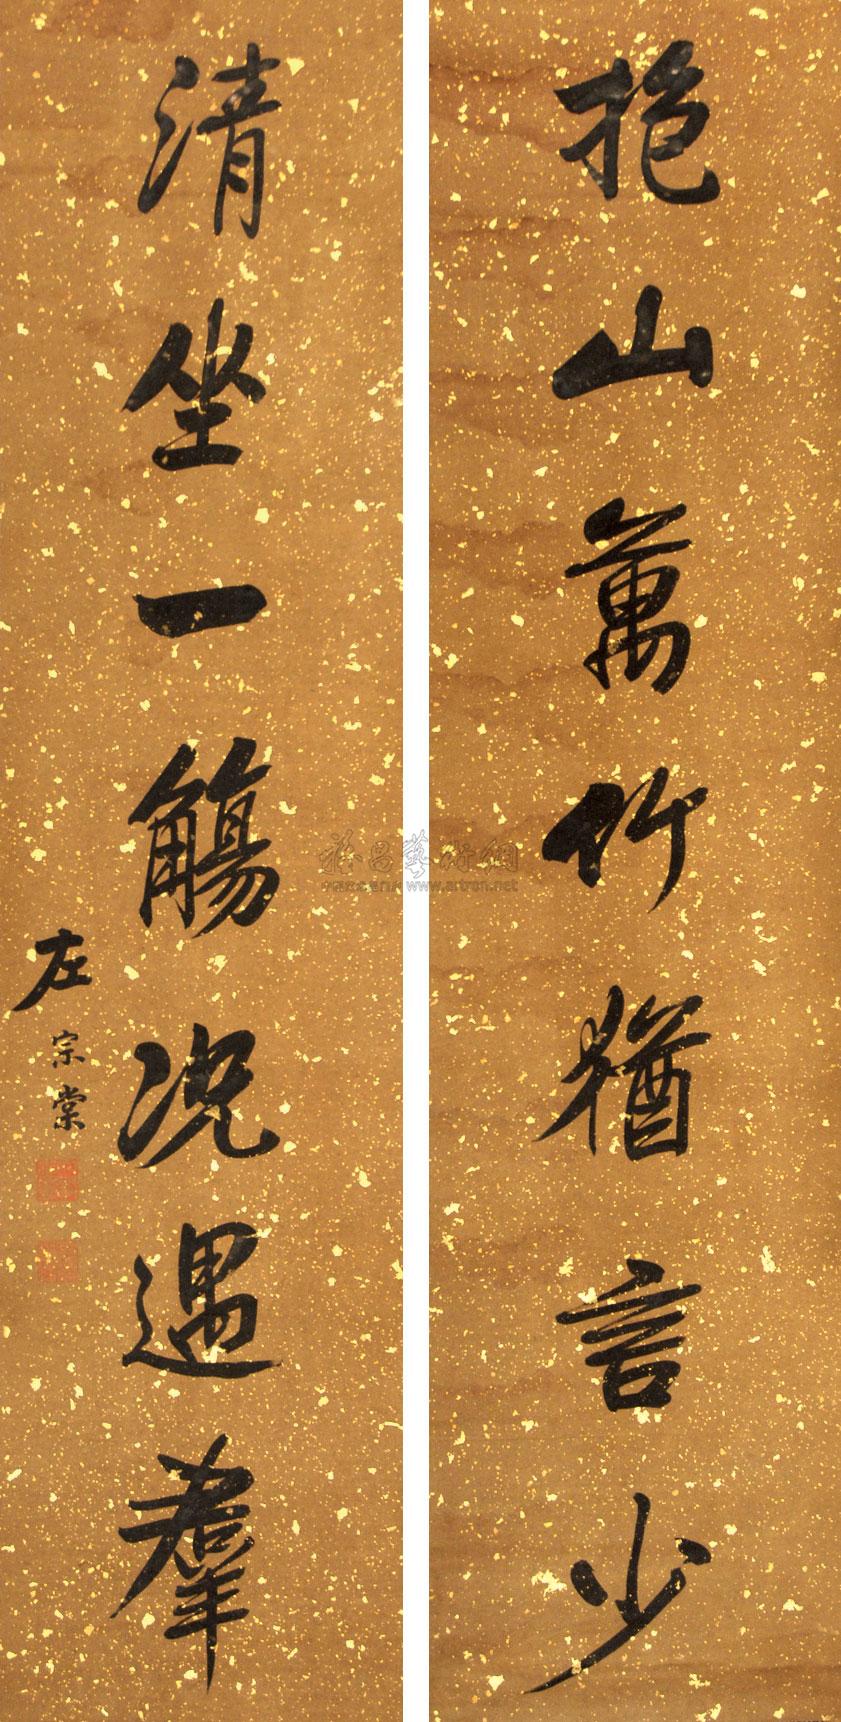 抱山萬竹猶言少
清坐一觴況遇羣
左宗棠
雅昌藝術網
www.artron.net